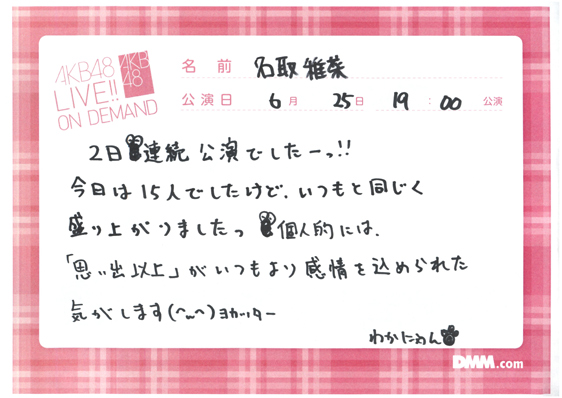 AKB48
LIVE!!
ON DEMAND
AKB
48
名前 名取稚菜
公演日 6月 25日 19:00 公演
2日連続公演でしたーっ!!
今日は15人でしたけど、いつもと同じく
盛り上がりましたっ 個人的には、
「思い出以上」がいつもより感情を込められた
気がします(^ω^)ヨカッター
わかにゃん
DMM.com